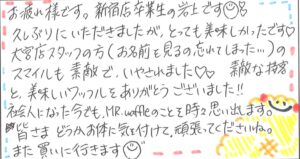 お疲れ様です。新宿店卒業生の岩上です
久しぶりにいただきましたが、とっても美味しかったです♡
大宮店スタッフの方(お名前を見るの忘れてしまった…)の
スマイルも素敵で、いやされました♡♡ 素敵な接客
と、美味しいワッフルをありがとうございました!!
社会人になった今でも、MR.waffleのことを時々思い出します。
皆さま どうかお体に気を付けて、頑張ってくださいね。
また買いに行きます